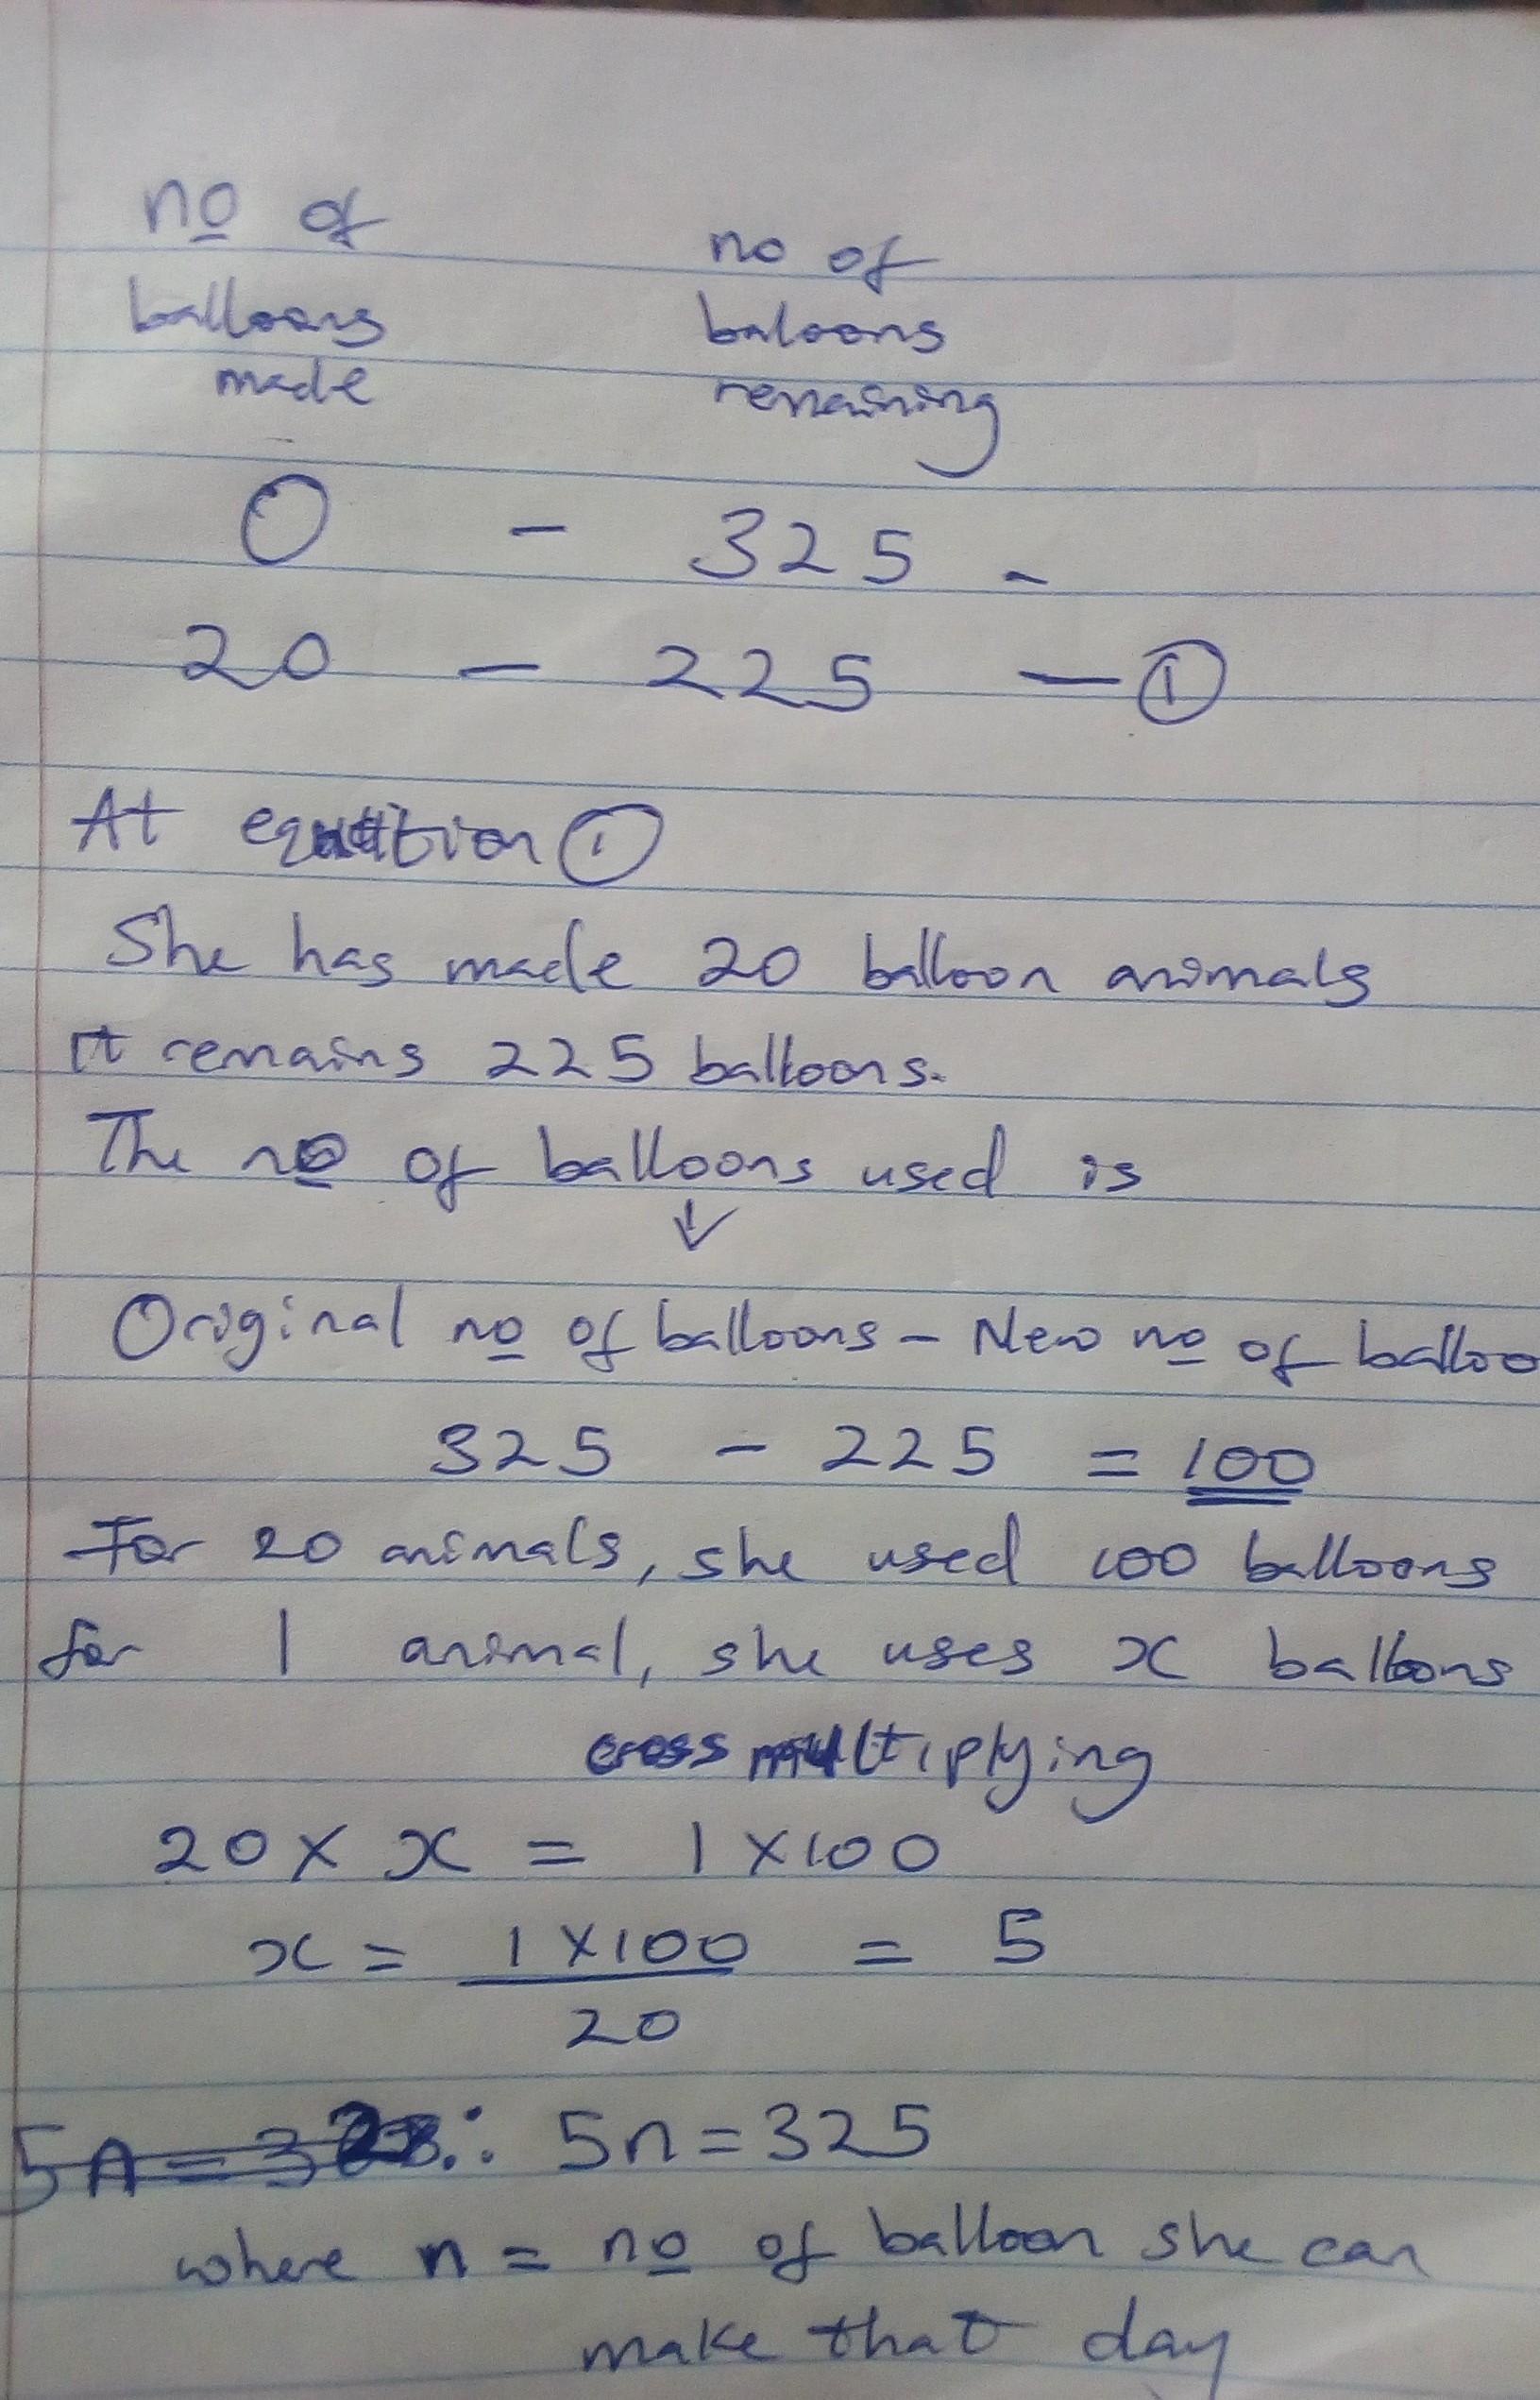 no of
balloons
made
no of
baloons
remaining
0 - 325 -
20 - 225 - ①
At equation ①
She has made 20 balloon animals
It remains 225 balloons.
The no of balloons used is
↓
Original no of balloons - New no of balloo
325 - 225 = 100
For 20 animals, she used 100 balloons
for 1 animal, she uses x balloons
cross multiplying
20 × x = 1 × 100
x = 1 × 100 / 20 = 5
∴ 5n = 325
where n = no of balloon she can
make that day